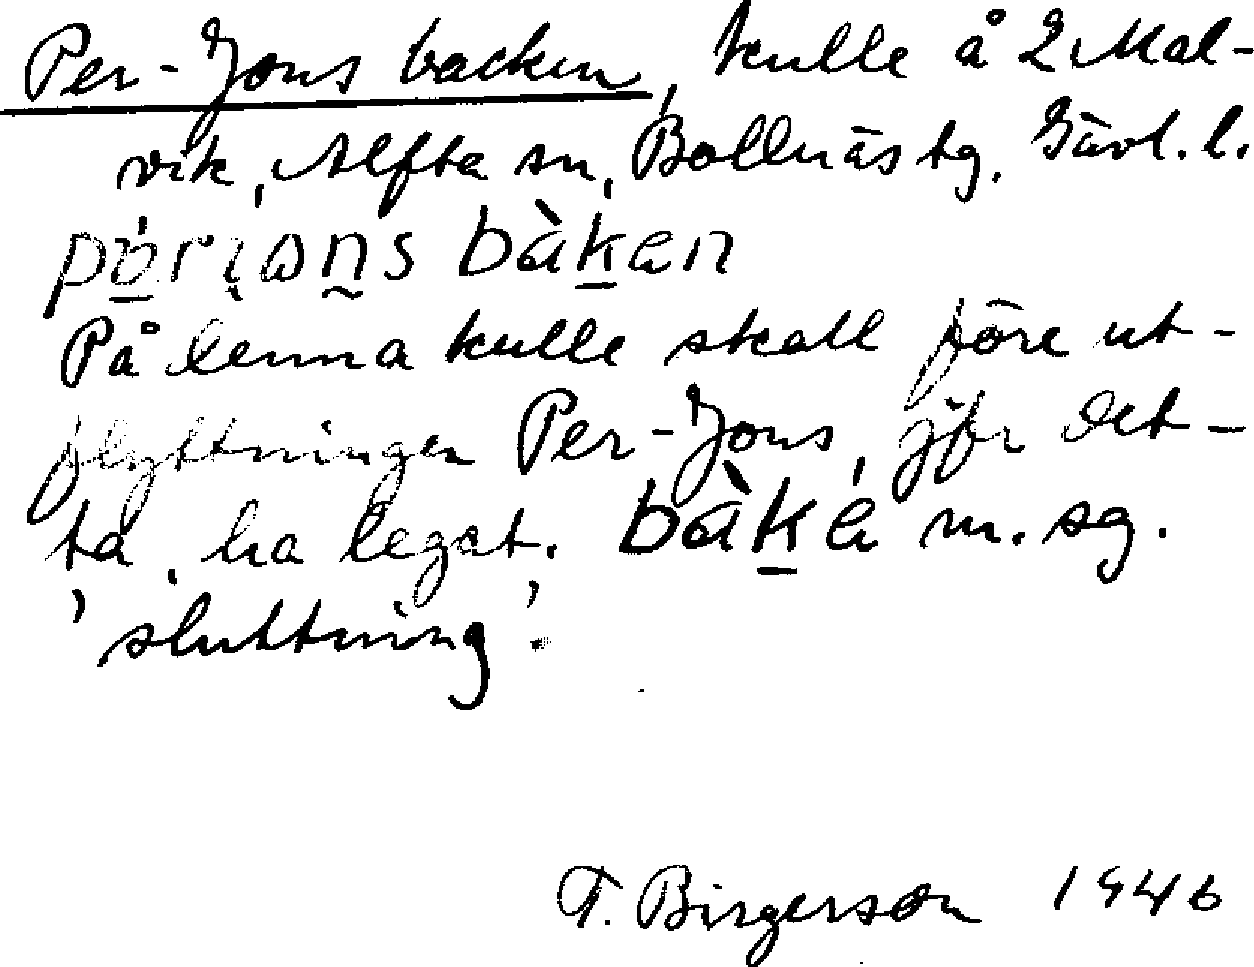 Per-Jons backen, kulle å 2 Mal-
vik, Alfta sn, Bollnäs tg. Gävl. l.
pə́ri̯ɷn̰s bàk̠en
På denna kulle skall före ut-
flyttningen Per-Jons, jfr det-
ta, ha legat. bàk̠é m. sg.
'sluttning'.
T. Birgerson 1946